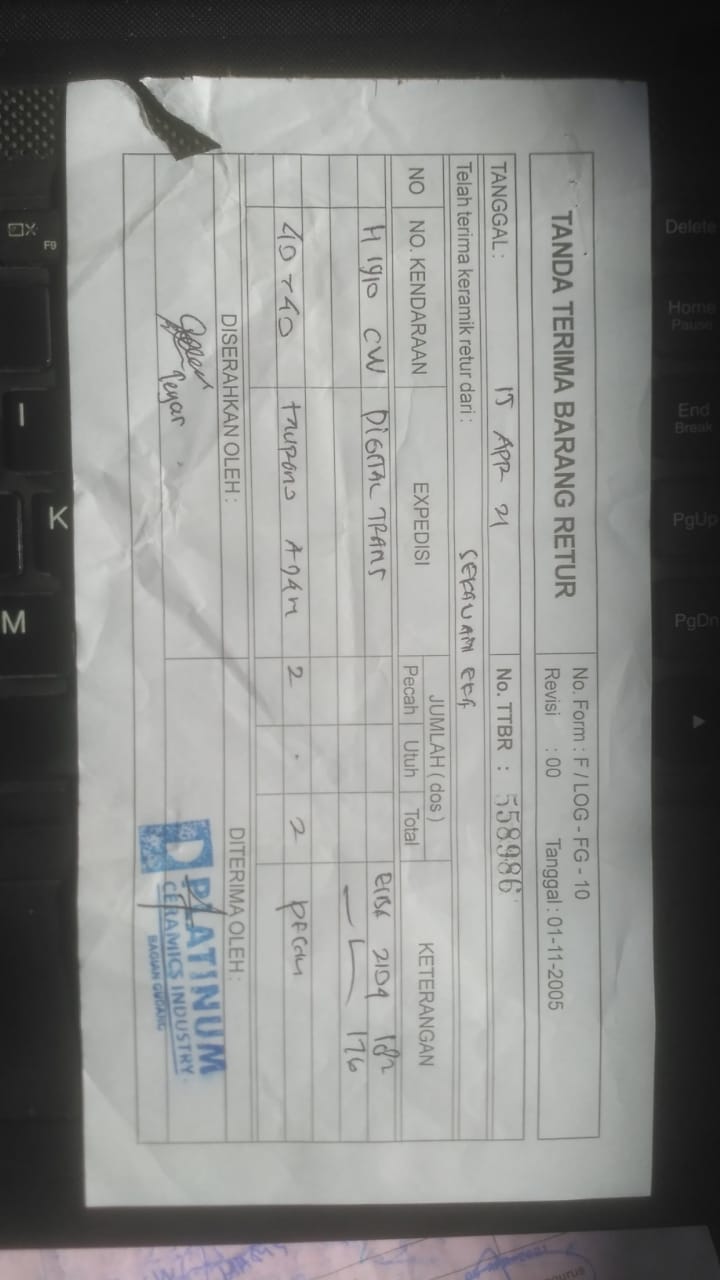 TANDA TERIMA BARANG RETUR
No. Form : F / LOG - FG - 10
Revisi : 00 Tanggal : 01-11-2005
TANGGAL : 15 APR 21 No. TTBR : 558986
Telah terima keramik retur dari :
NO NO. KENDARAAN EXPEDISI JUMLAH ( dos ) KETERANGAN
Pecah Utuh Total
H 1910 CW DIGITAL TRANS 2104 182
176
40 x 40 2 . 2 PECAH
DISERAHKAN OLEH : DITERIMA OLEH :
PLATINUM
CERAMICS INDUSTRY
BAGIAN GUDANG
Delete
Home
Pause
End
Break
PgUp
PgDn
F9
I
K
M